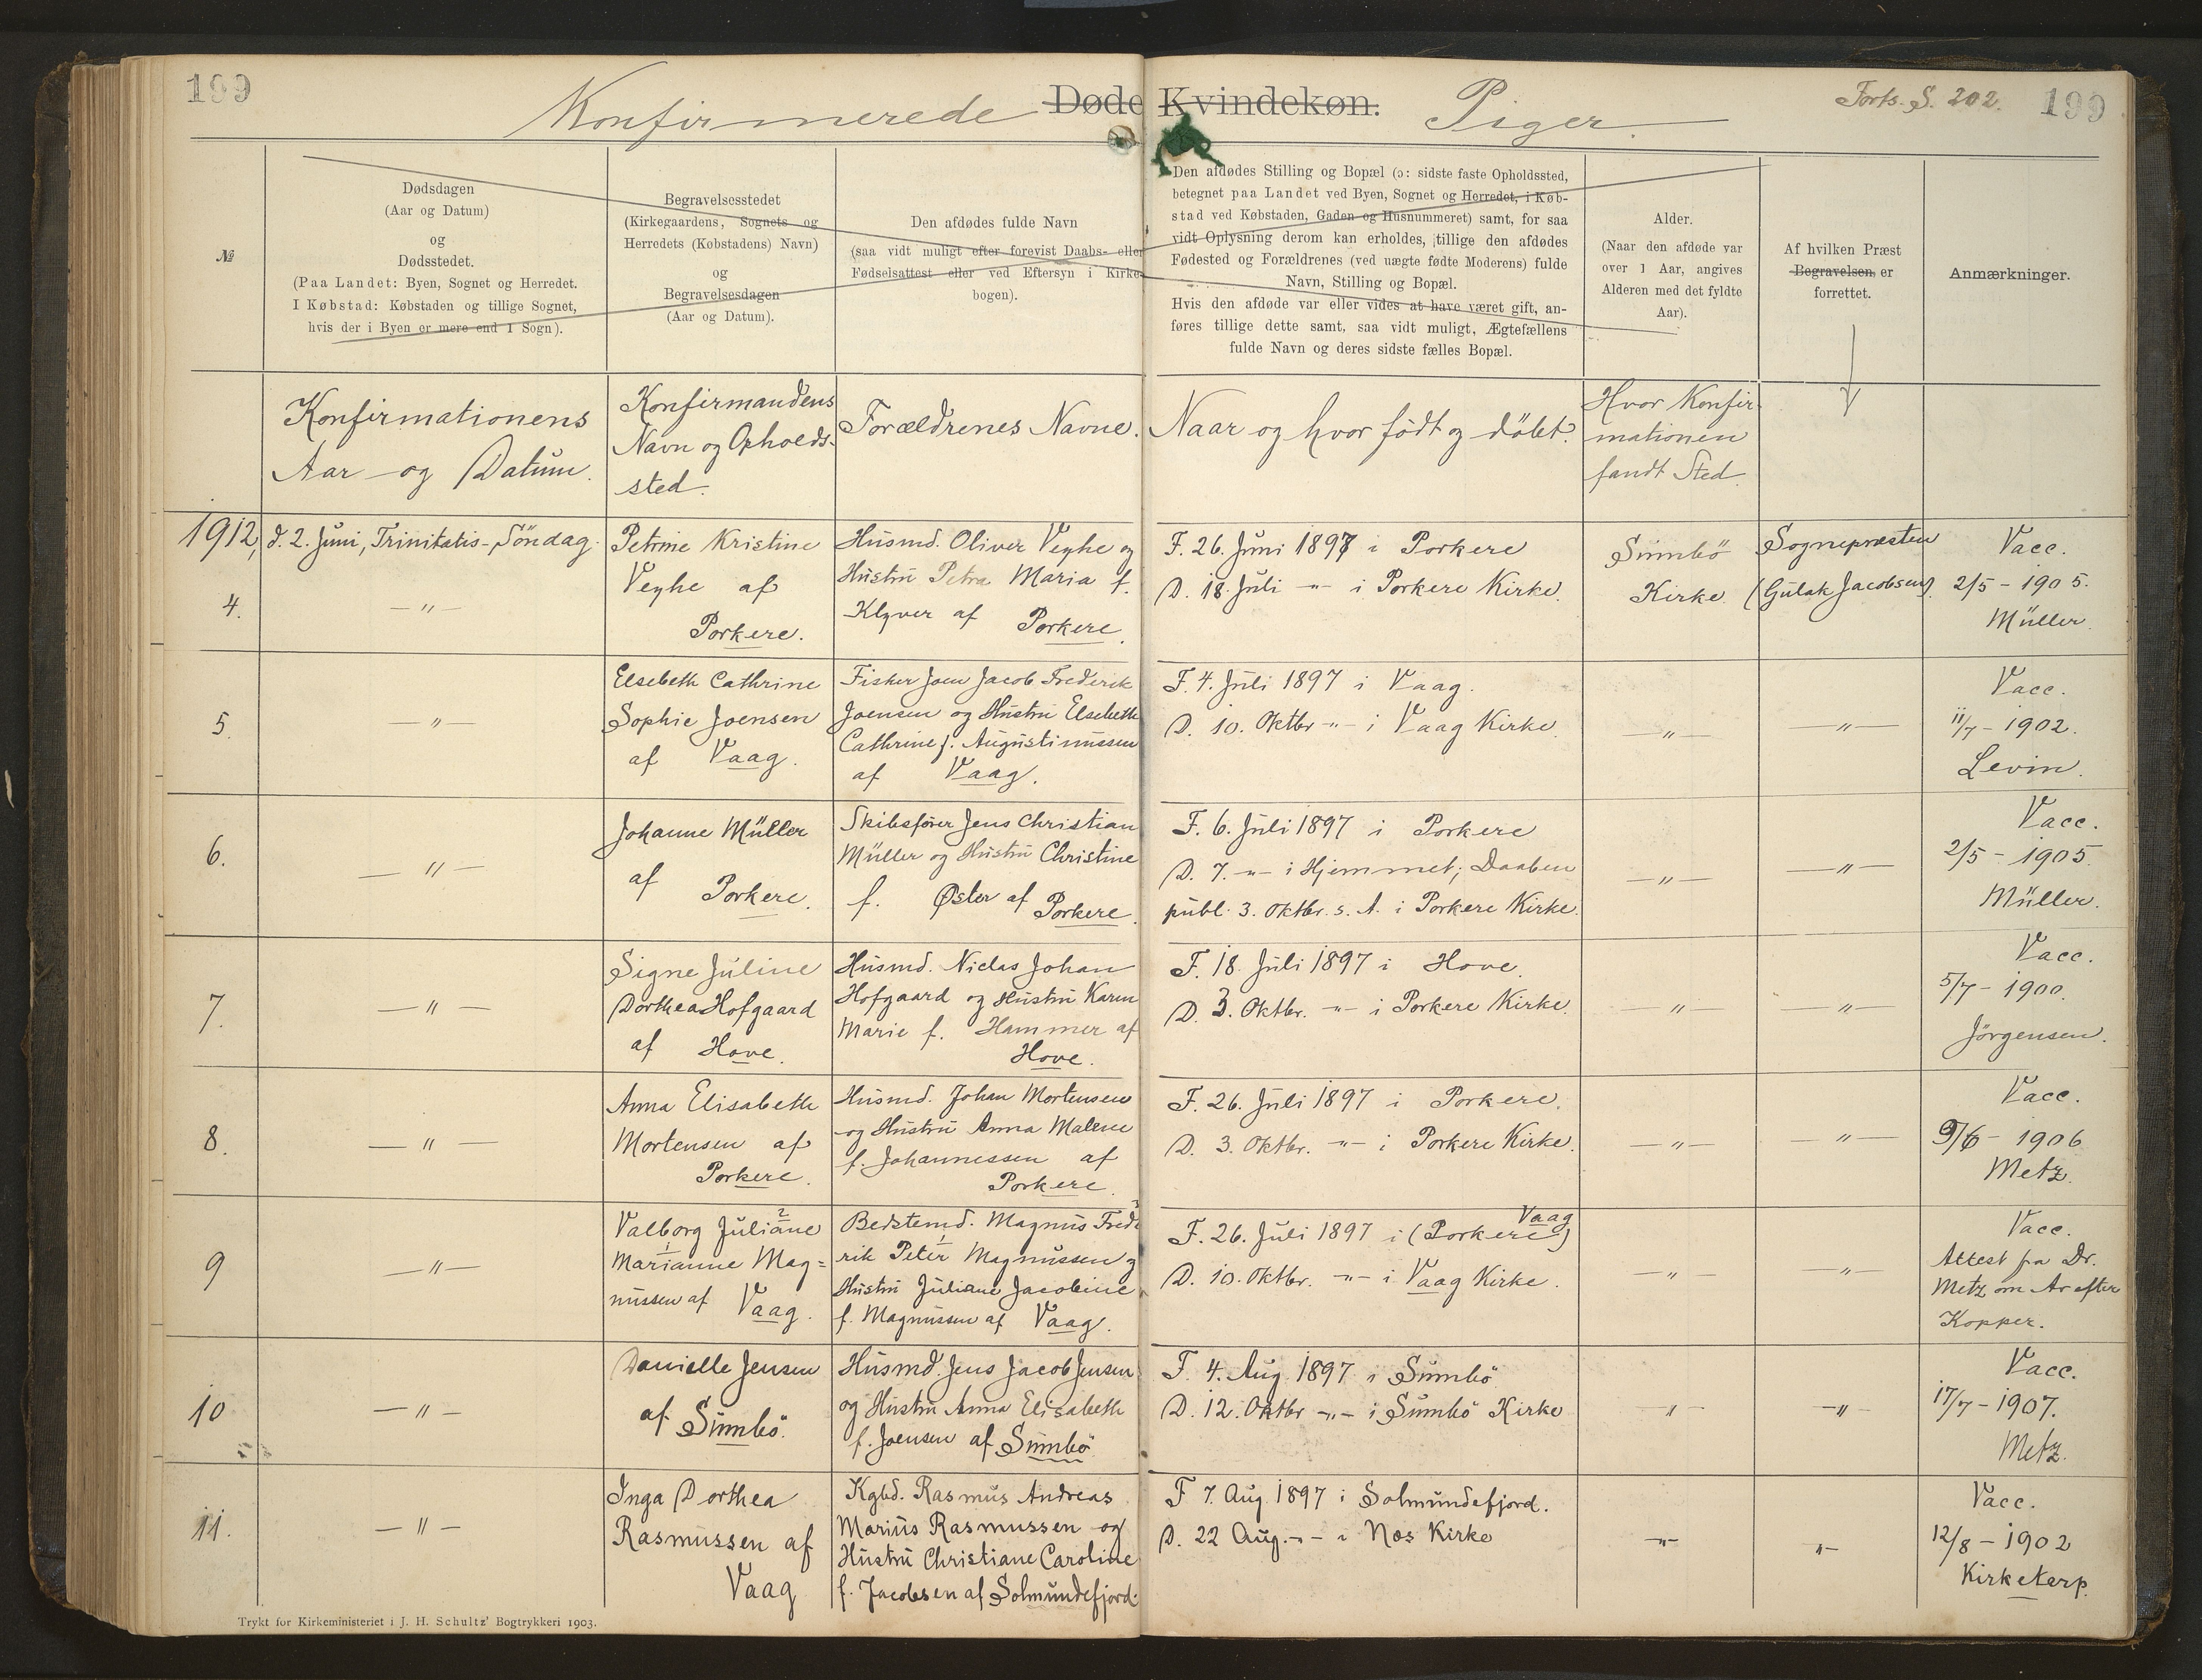 199
Konfirmerede Døde Kvindekøn. Piger.
Forts. S. 202.
199
№
Dødsdagen
(Aar og Datum)
og
Dødsstedet.
(Paa Landet: Byen, Sognet og Herredet.
I Købstad: Købstaden og tillige Sognet,
hvis der i Byen er mere end 1 Sogn).
Begravelsesstedet
(Kirkegaardens, Sognets og
Herredets (Købstadens) Navn)
og
Begravelsesdagen
(Aar og Datum).
Den afdødes fulde Navn
(saa vidt muligt efter forevist Daabs- eller
Fødselsattest eller ved Eftersyn i Kirke-
bogen).
Den afdødes Stilling og Bopæl (ɔ: sidste faste Opholdssted,
betegnet paa Landet ved Byen, Sognet og Herredet, i Køb-
stad ved Købstaden, Gaden og Husnummeret) samt, for saa
vidt Oplysning derom kan erholdes, tillige den afdødes
Fødested og Forældrenes (ved uægte fødte Moderens) fulde
Navn, Stilling og Bopæl.
Hvis den afdøde var eller vides at have været gift, an-
føres tillige dette samt, saa vidt muligt, Ægtefællens
fulde Navn og deres sidste fælles Bopæl.
Alder.
(Naar den afdøde var
over 1 Aar, angives
Alderen med det fyldte
Aar).
Af hvilken Præst
Begravelsen er
forrettet.
Anmærkninger.
Konfirmationens
Aar og Datum.
Konfirmandens
Navn og Opholds-
sted.
Forældrenes Navne.
Naar og hvor født og döbt.
Hvor Konfir-
mationen
fandt Sted.
1912, d. 2. Juni, Trinitatis-Söndag.
4.
—"—
Petrine Kristine
Veyhe af
Porkere.
Husmd. Oliver Veyhe og
Hustru Petra Maria f.
Klyver af Porkere.
F. 26. Juni 1897 i Porkere
D. 18. Juli —"— i Porkere Kirke.
Sumbö
Kirke.
Sognepræsten
(Gulak Jacobsen).
Vacc.
2/5 - 1905.
Müller.
5.
—"—
Elsebeth Cathrine
Sophie Joensen
af Vaag.
Fisker Joen Jacob Frederik
Joensen og Hustru Elsebeth
Cathrine f. Augustinussen
af Vaag.
F. 4. Juli 1897 i Vaag.
D. 10. Oktbr —"— i Vaag Kirke.
—"—
—"—
Vacc.
11/7 - 1902.
Levin.
6.
—"—
Johanne Müller
af Porkere.
Skibsfører Jens Christian
Müller og Hustru Christine
f. Øster af Porkere.
F. 6. Juli 1897 i Porkere
D. 7. —"— i Hjemmet; Daaben
publ. 3. Oktbr. s. A. i Porkere Kirke.
—"—
—"—
Vacc.
2/5 - 1905.
Müller.
7.
—"—
Signe Juline
Dorthea Hofgaard
af Hove.
Husmd. Niclas Johan
Hofgaard og Hustru Karen
Marie f. Hammer af
Hove.
F. 18. Juli 1897 i Hove.
D. 3. Oktbr. —"— i Porkere Kirke.
—"—
—"—
Vacc.
5/7 - 1900.
Jörgensen.
8.
—"—
Anna Elisabeth
Mortensen af
Porkere.
Husmd. Johan Mortensen
og Hustru Anna Malene
f. Johannessen af
Porkere.
F. 26. Juli 1897 i Porkere.
D. 3. Oktbr. —"— i Porkere Kirke.
—"—
—"—
Vacc.
9/6 - 1906
Metz.
9
—"—
Valborg Juliane
Marianne Mag=
nussen af Vaag.
Bedstemd. Magnus Frede
rik Peter Magnussen og
Hustru Juliane Jacobine
f. Magnussen af Vaag.
F. 26. Juli 1897 i (Porkere) Vaag
D. 10. Oktbr. —"— i Vaag Kirke.
—"—
—"—
Vacc.
Attest fra Dr.
Metz om Ar efter
Kopper.
10
—"—
Danielle Jensen
af Sumbö.
Husmd. Jens Jacob Jensen
og Hustru Anna Elisabeth
f. Joensen af Sumbö
F. 4. Aug 1897 i Sumbö
D. 12. Oktbr —"— i Sumbö Kirke
—"—
—"—
Vacc.
17/7 - 1907.
Metz.
11.
—"—
Inga Dorthea
Rasmussen af
Vaag
Kgbd. Rasmus Andreas
Marius Rasmussen og
Hustru Christiane Caroline
f. Jacobsen af Solmundefjord.
F 7. Aug 1897 i Solmundefjord.
D. 22 Aug. —"— i Nes Kirke
—"—
—"—
Vacc.
12/8 - 1902
Kirketerp.
Trykt for Kirkeministeriet i J. H. Schultz' Bogtrykkeri 1903.